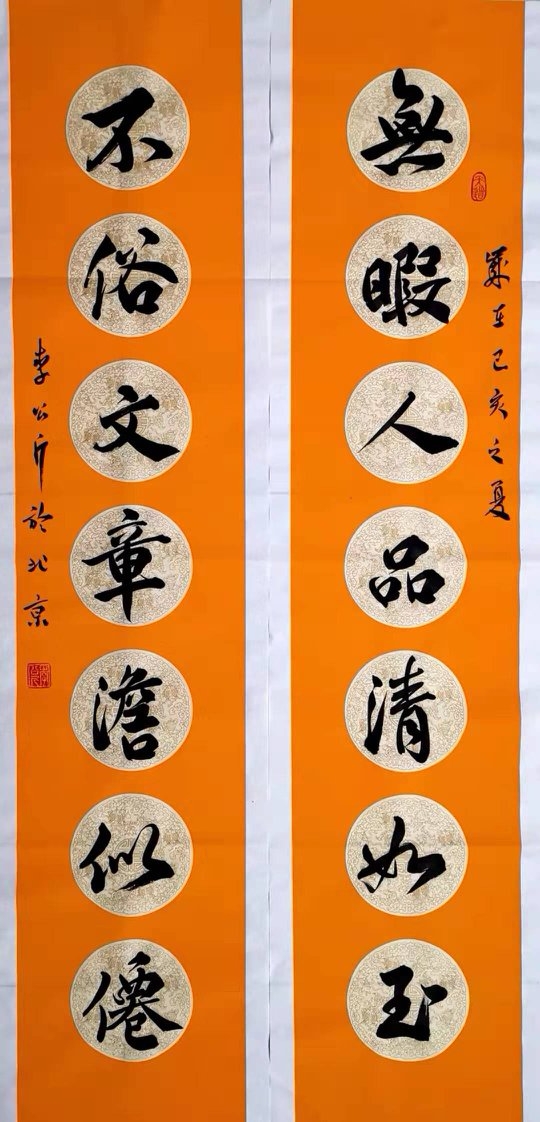 歲在己亥之夏
無暇人品清如玉
不俗文章澹似僊
李公於北京